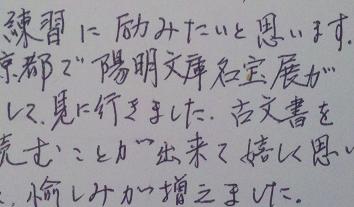 練習に励みたいと思います。
京都で陽明文庫名宝展が
して、見に行きました。古文書を
読むことが出来て嬉しく思い
愉しみが増えました。